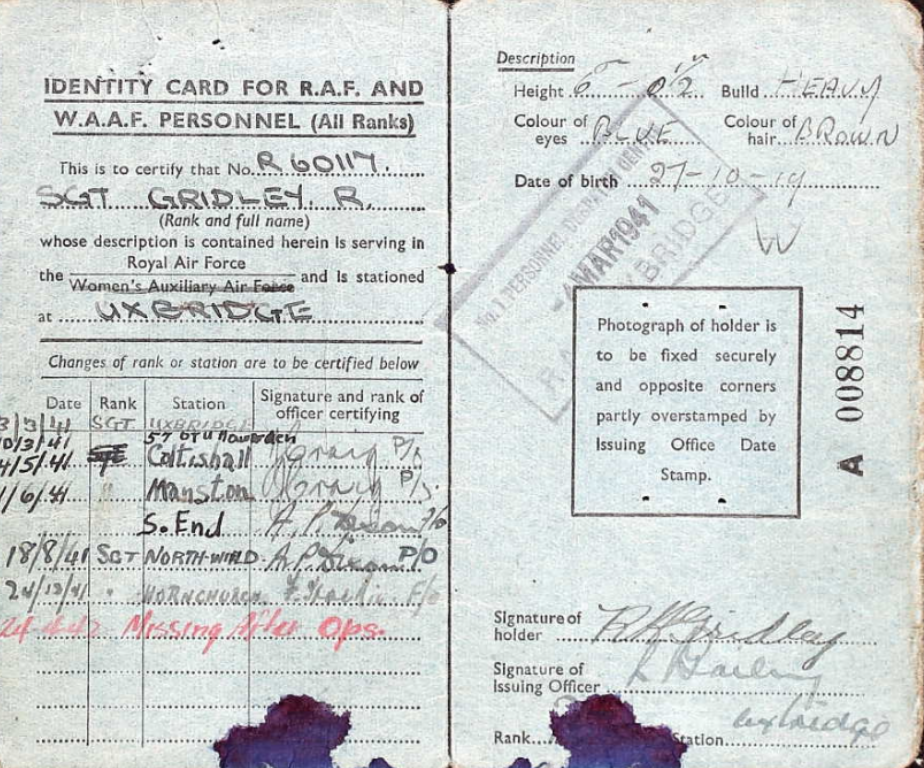 IDENTITY CARD FOR R.A.F. AND
W.A.A.F. PERSONNEL (All Ranks)
This is to certify that No. R 60117.
SGT GRIDLEY. R.
(Rank and full name)
whose description is contained herein is serving in
Royal Air Force
the Women's Auxiliary Air Force and is stationed
at UXBRIDGE
Changes of rank or station are to be certified below
Date Rank Station Signature and rank of
officer certifying
3/3/41 SGT UXBRIDGE
10/3/41 57 OTU Hawarden
4/5/41 Coltishall Craig P/O
1/6/41 " Manston Craig P/O
S. End A. P.
18/8/41 SGT NORTH-WALD A.P. P/O
HORNCHURCH F/O
Missing After Ops.
Description
Height 6' - 0½" Build HEAVY
Colour of eyes BLUE Colour of hair BROWN
Date of birth 27-10-19
W
No. 1 PERSONNEL
MAR 1941
BRIDGE
Photograph of holder is
to be fixed securely
and opposite corners
partly overstamped by
Issuing Office Date
Stamp.
A 008814
Signature of
holder R H Gridley
Signature of
Issuing Officer
Rank Station Uxbridge